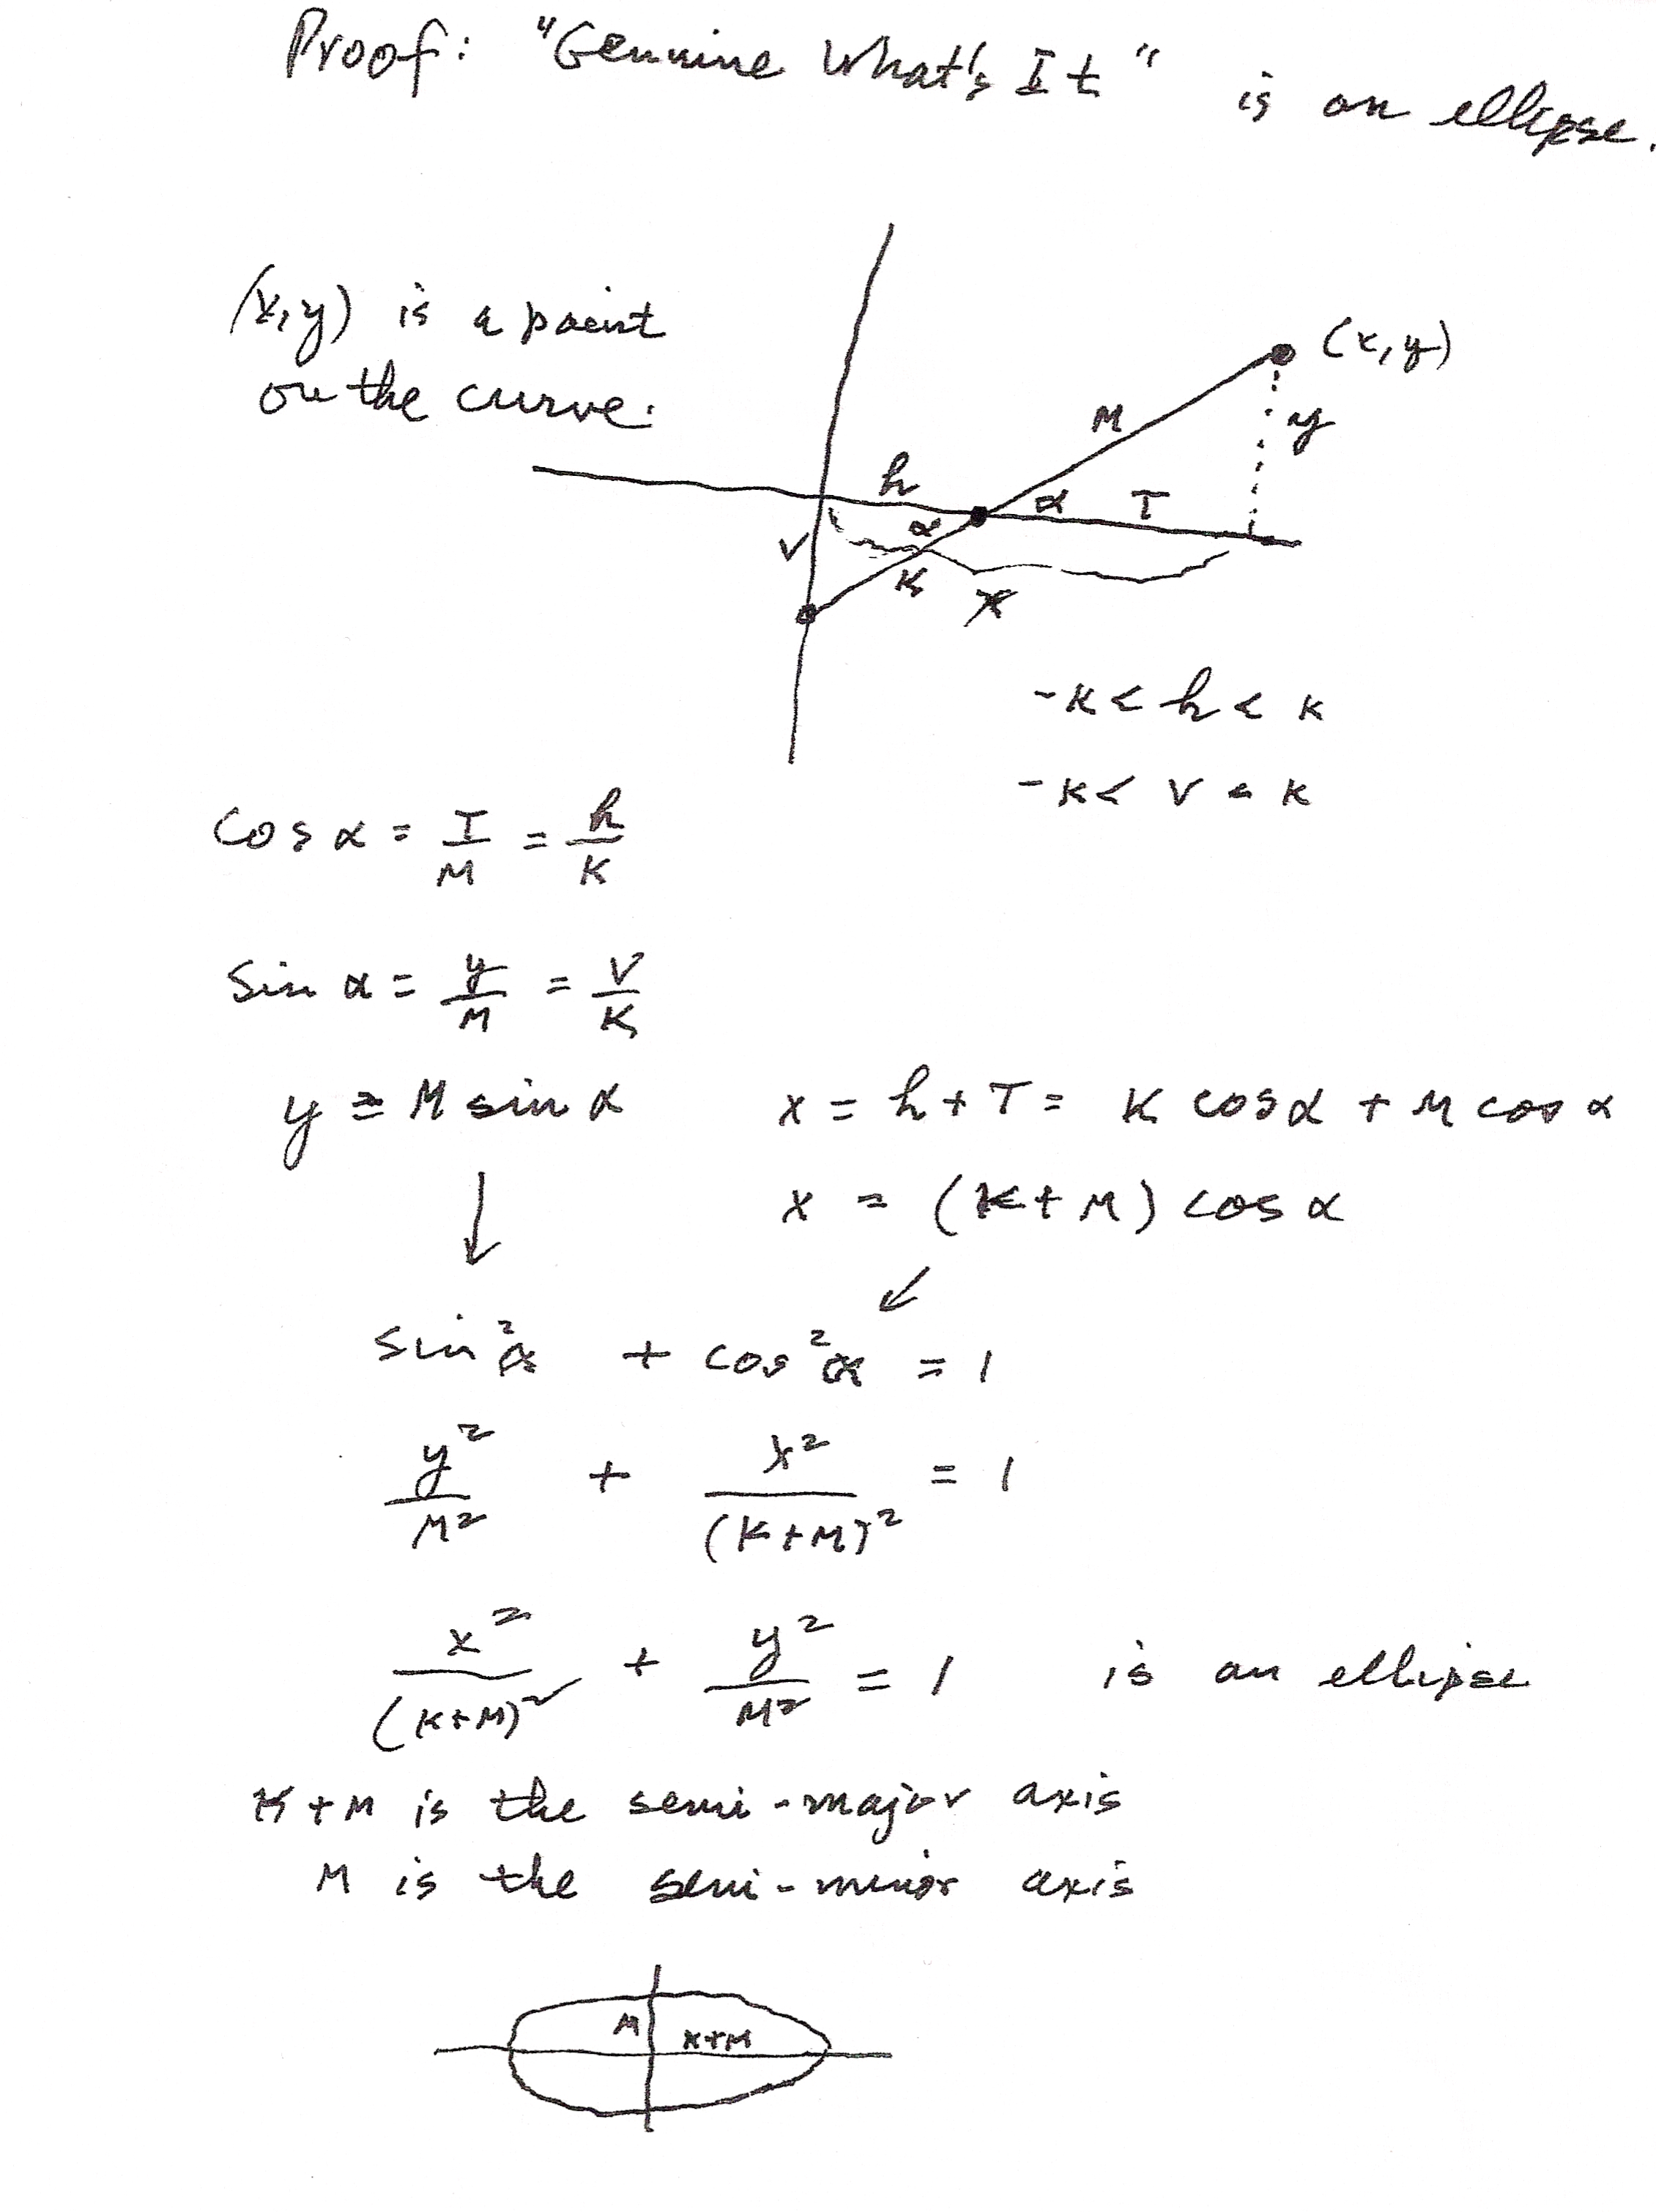 Proof: "Genuine What's It" is an ellipse.
(x,y) is a point
on the curve.
(x,y)
M
y
h
α T
α
V
K
X
-K < h < K
-K < V < K
cos α = T/M = h/K
sin α = y/M = V/K
y = M sin α
x = h + T = K cos α + M cos α
x = (K+M) cos α
↓ ↙
sin²α + cos²α = 1
y²/M² + x²/(K+M)² = 1
x²/(K+M)² + y²/M² = 1 is an ellipse
K+M is the semi-major axis
M is the semi-minor axis
M K+M